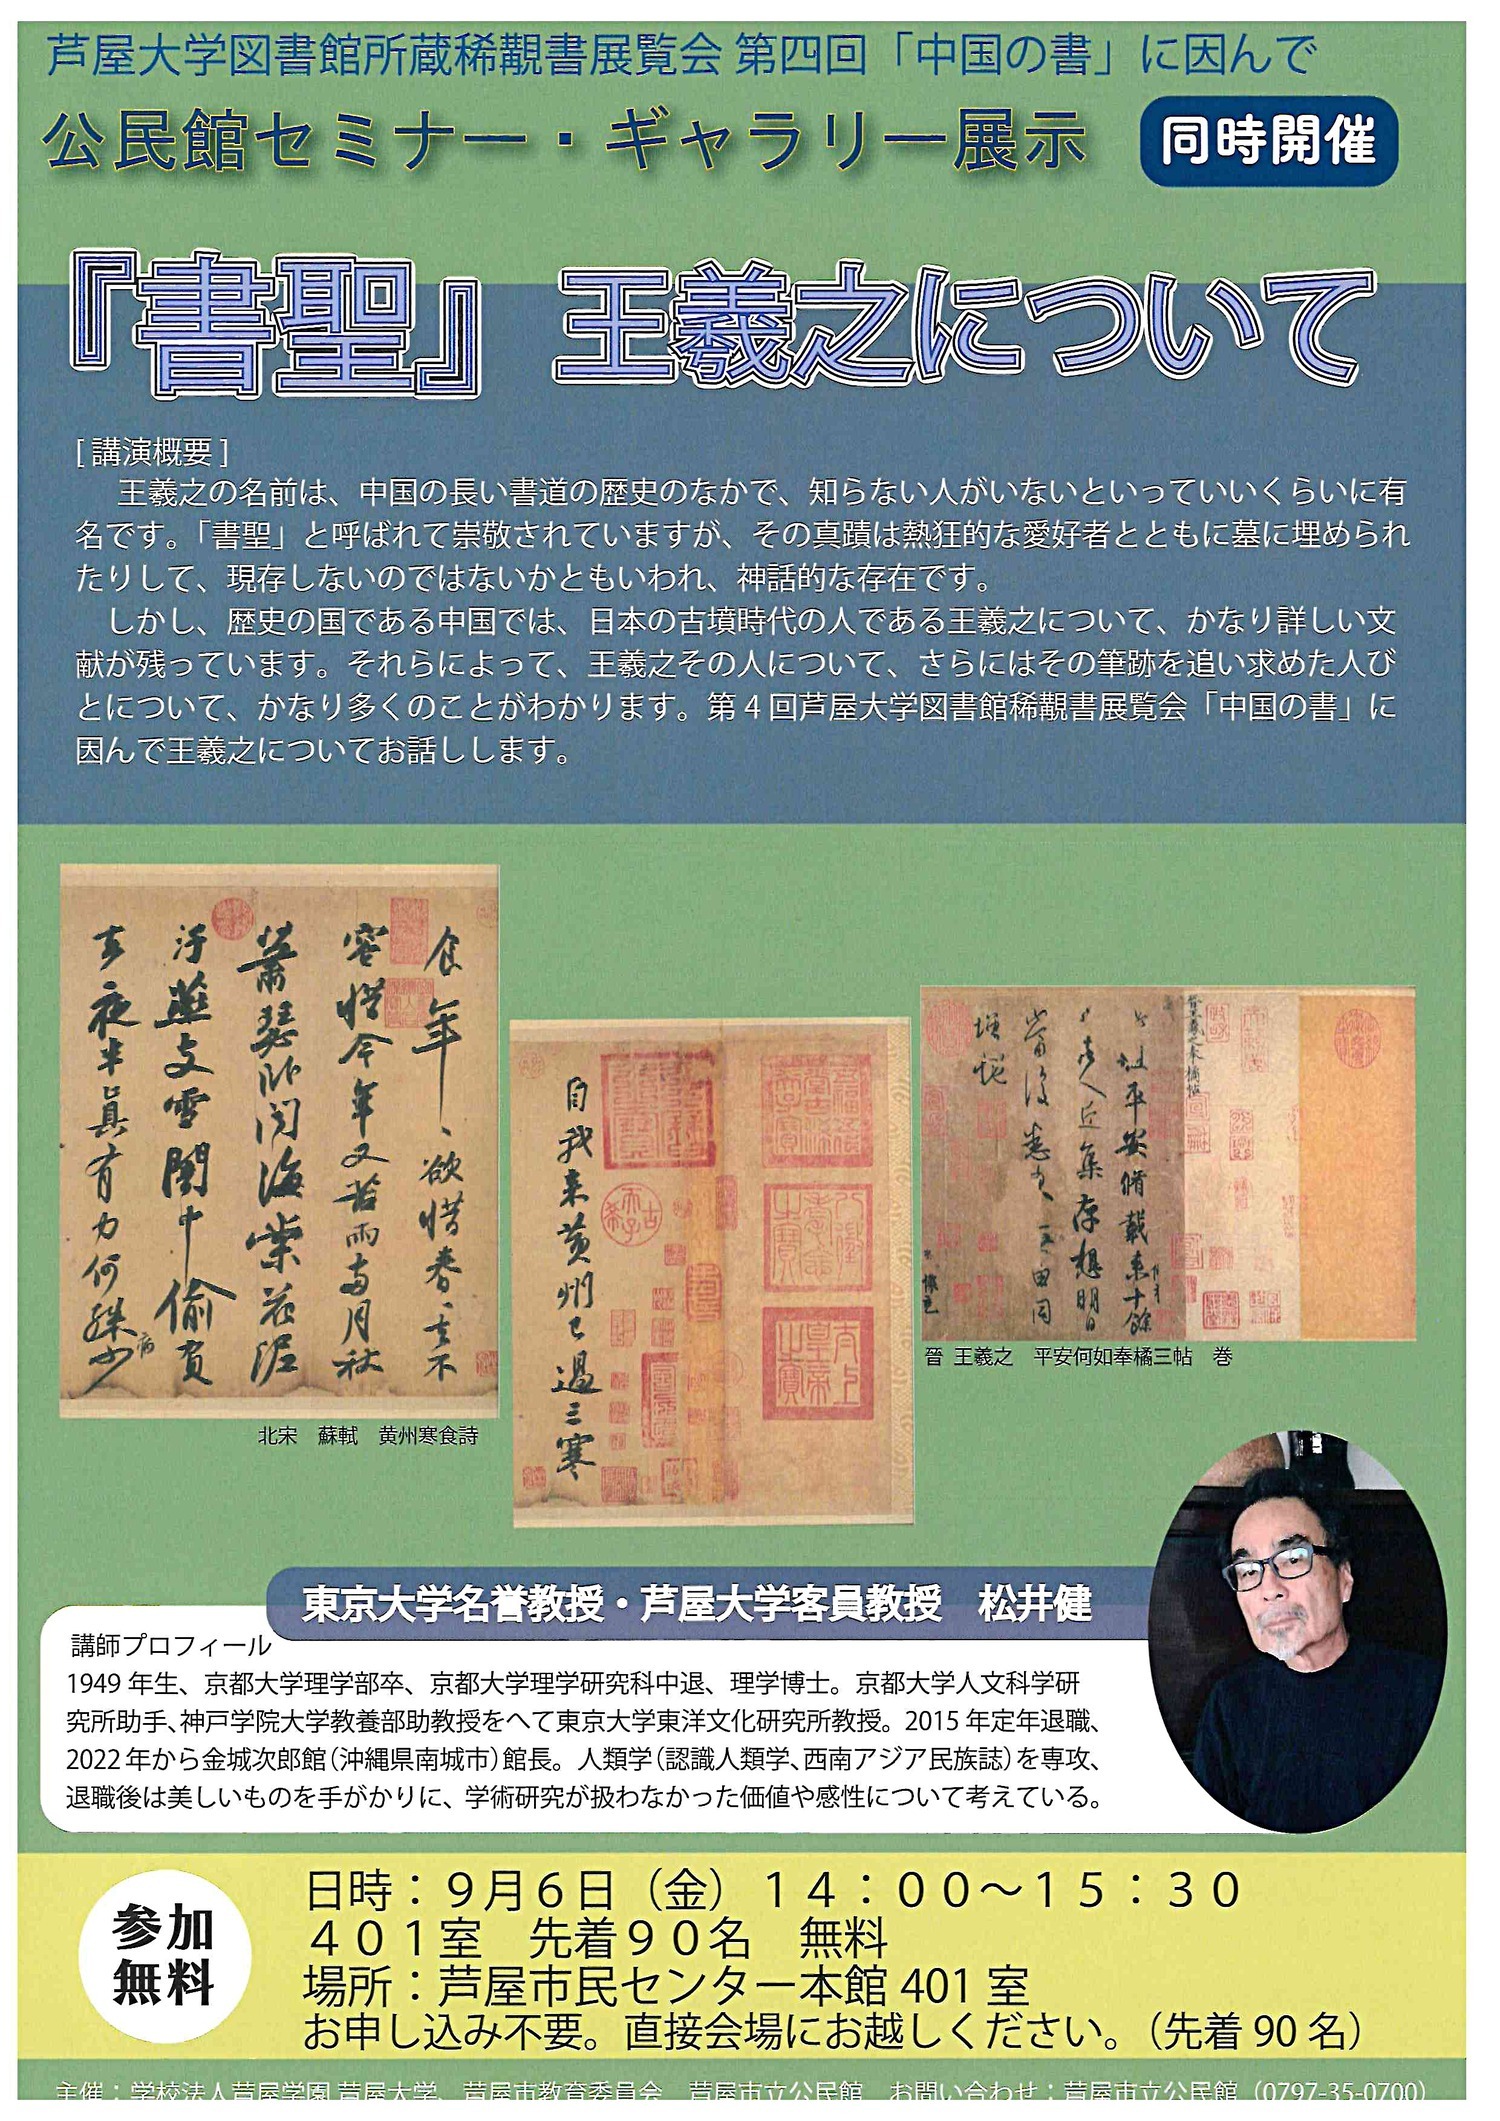 芦屋大学図書館所蔵稀覯書展覧会 第四回「中国の書」に因んで
公民館セミナー・ギャラリー展示
同時開催
『書聖』 王羲之について
[ 講演概要 ]
王羲之の名前は、中国の長い書道の歴史のなかで、知らない人がいないといっていいくらいに有
名です。「書聖」と呼ばれて崇敬されていますが、その真蹟は熱狂的な愛好者とともに墓に埋められ
たりして、現存しないのではないかともいわれ、神話的な存在です。
しかし、歴史の国である中国では、日本の古墳時代の人である王羲之について、かなり詳しい文
献が残っています。それらによって、王羲之その人について、さらにはその筆跡を追い求めた人び
とについて、かなり多くのことがわかります。第 4 回芦屋大学図書館稀覯書展覧会「中国の書」に
因んで王羲之についてお話しします。
自我来黄州已過三寒
食年、欲惜春々去不
容惜今年又苦雨両月秋
蕭瑟臥聞海棠花泥
汙燕支雪闇中偷負
去夜半真有力何殊少
北宋　蘇軾　黄州寒食詩
晉 王羲之　平安何如奉橘三帖　巻
東京大学名誉教授・芦屋大学客員教授　松井健
講師プロフィール
1949 年生、京都大学理学部卒、京都大学理学研究科中退、理学博士。京都大学人文科学研
究所助手、神戸学院大学教養部助教授をへて東京大学東洋文化研究所教授。2015 年定年退職、
2022 年から金城次郎館（沖縄県南城市）館長。人類学（認識人類学、西南アジア民族誌）を専攻、
退職後は美しいものを手がかりに、学術研究が扱わなかった価値や感性について考えている。
参加
無料
日時：９月６日（金）１４：００～１５：３０
４０１室　先着９０名　無料
場所：芦屋市民センター本館 401 室
お申し込み不要。直接会場にお越しください。（先着 90 名）
主催：学校法人芦屋学園 芦屋大学、芦屋市教育委員会　芦屋市立公民館　お問い合わせ：芦屋市立公民館（0797-35-0700）